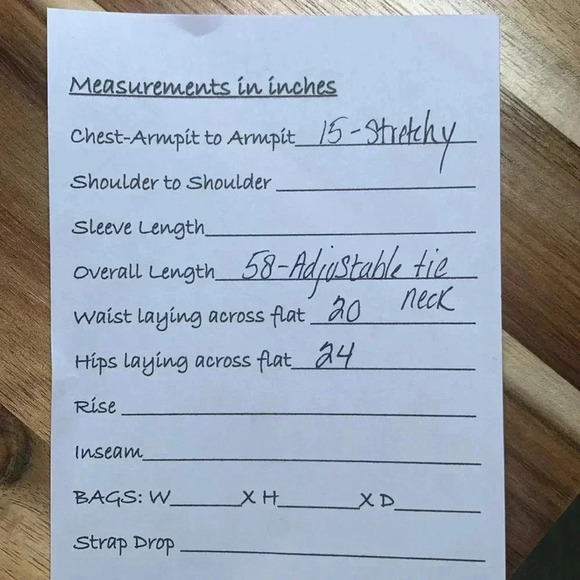 Measurements in inches
Chest-Armpit to Armpit 15-Stretchy
Shoulder to Shoulder
Sleeve Length
Overall Length 58-Adjustable tie neck
Waist laying across flat 20
Hips laying across flat 24
Rise
Inseam
BAGS: W______X H______X D______
Strap Drop